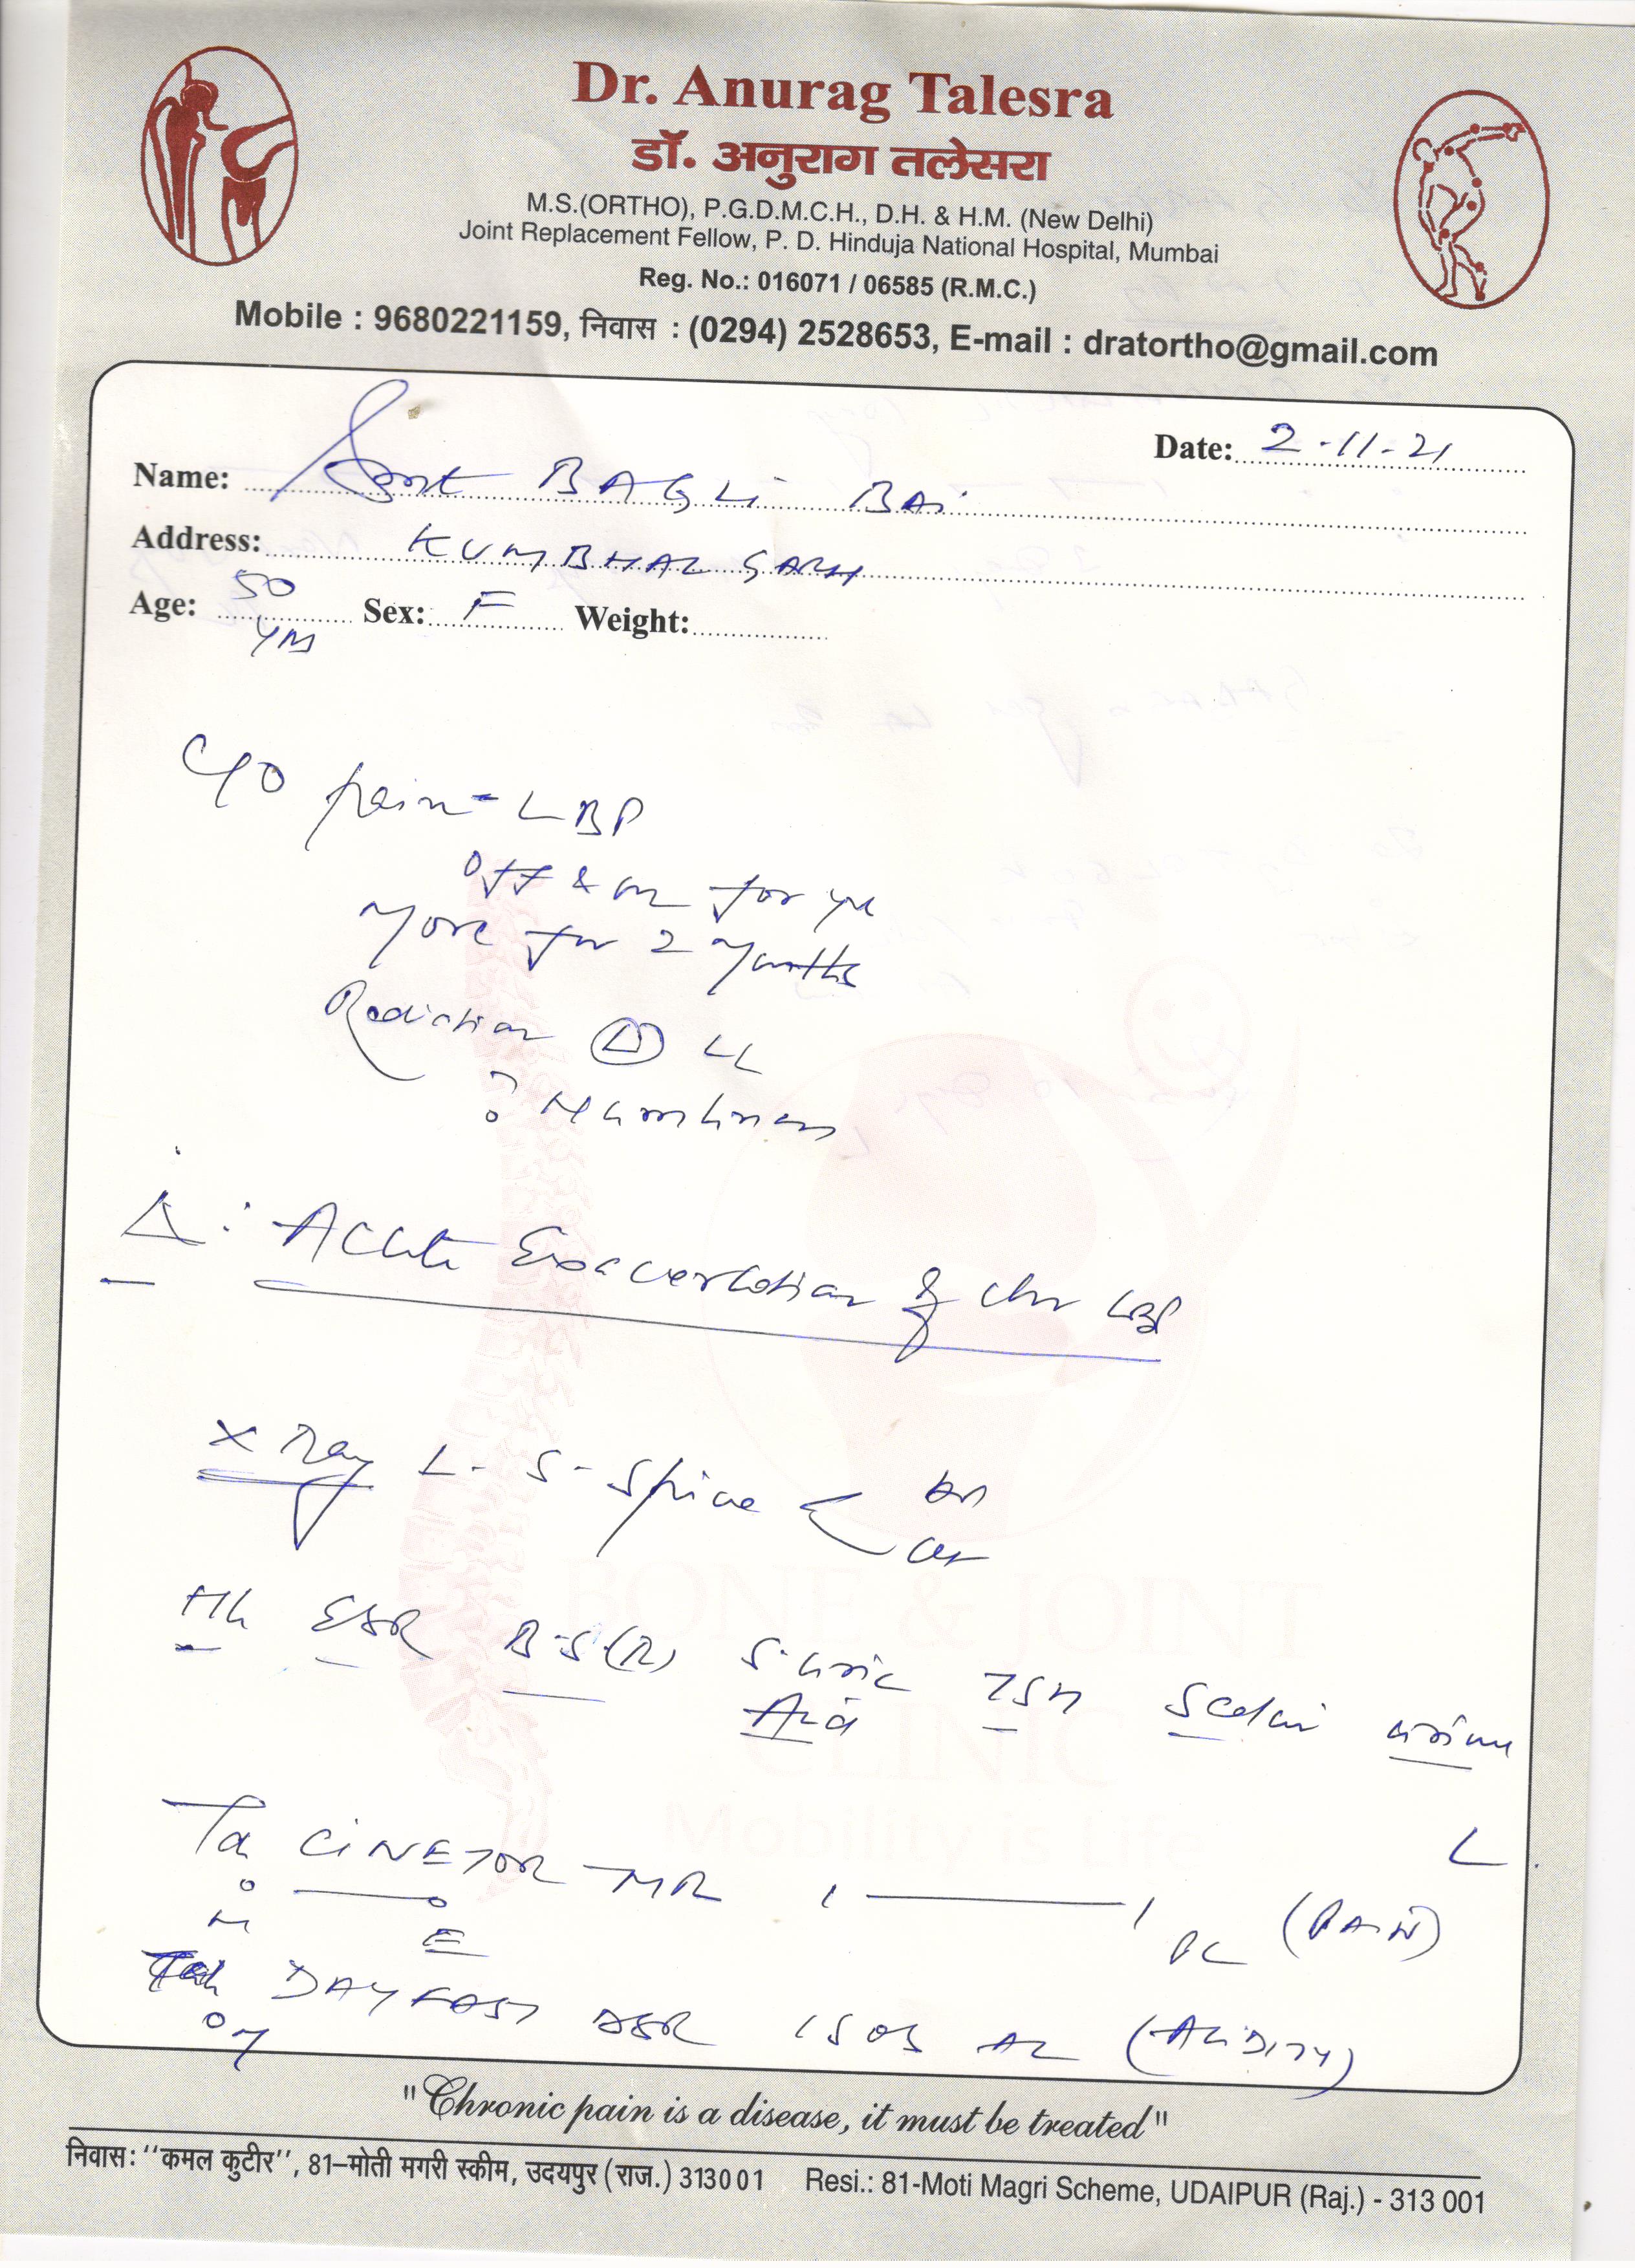 Dr. Anurag Talesra
डॉ. अनुराग तलेसरा
M.S.(ORTHO), P.G.D.M.C.H., D.H. & H.M. (New Delhi)
Joint Replacement Fellow, P. D. Hinduja National Hospital, Mumbai
Reg. No.: 016071 / 06585 (R.M.C.)
Mobile : 9680221159, निवास : (0294) 2528653, E-mail : dratortho@gmail.com
Date: 2-11-21
Name: Smt BAGLi BAi
Address: KUMBHALGARH
Age: 50 Sex: F Weight:
C/O pain - LBP
Off & on for
More for 2 Months
Radiation LL
? Numbness
Δ: Acute Exacerbation of chr LBP
X Ray L-S-Spine <
Hb ESR B-S(R) S-uric TSH S Calci urine
Acid
CiNETOR MR (PAiN)
M E
DAYFAST DSR (ACiDITY)
"Chronic pain is a disease, it must be treated"
निवास: ''कमल कुटीर'', 81–मोती मगरी स्कीम, उदयपुर (राज.) 313001 Resi.: 81-Moti Magri Scheme, UDAIPUR (Raj.) - 313 001